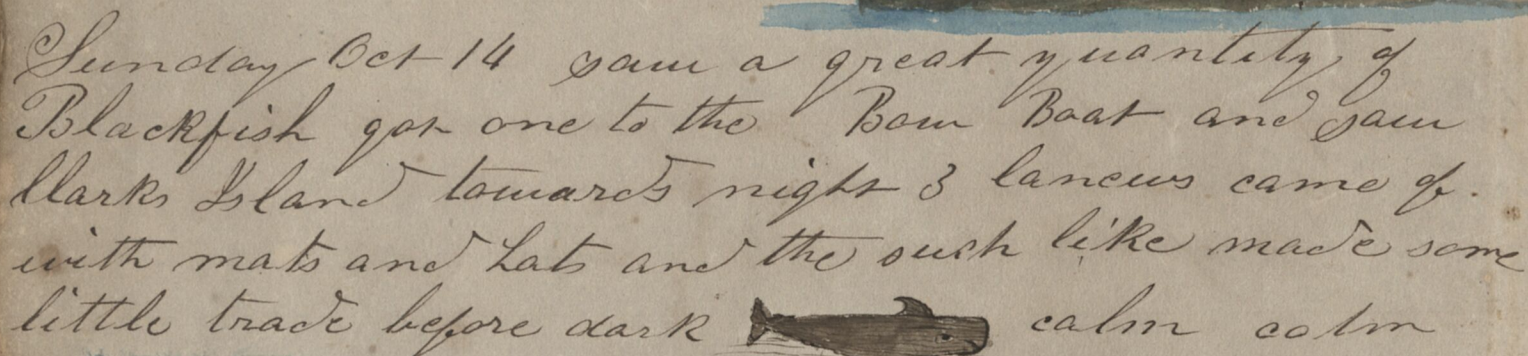 Sunday Oct 14 saw a great quantity of
Blackfish got one to the Bow Boat and saw
Clarks Island towards night 3 canews came of
with mats and hats and the such like made some
little trade before dark calm calm